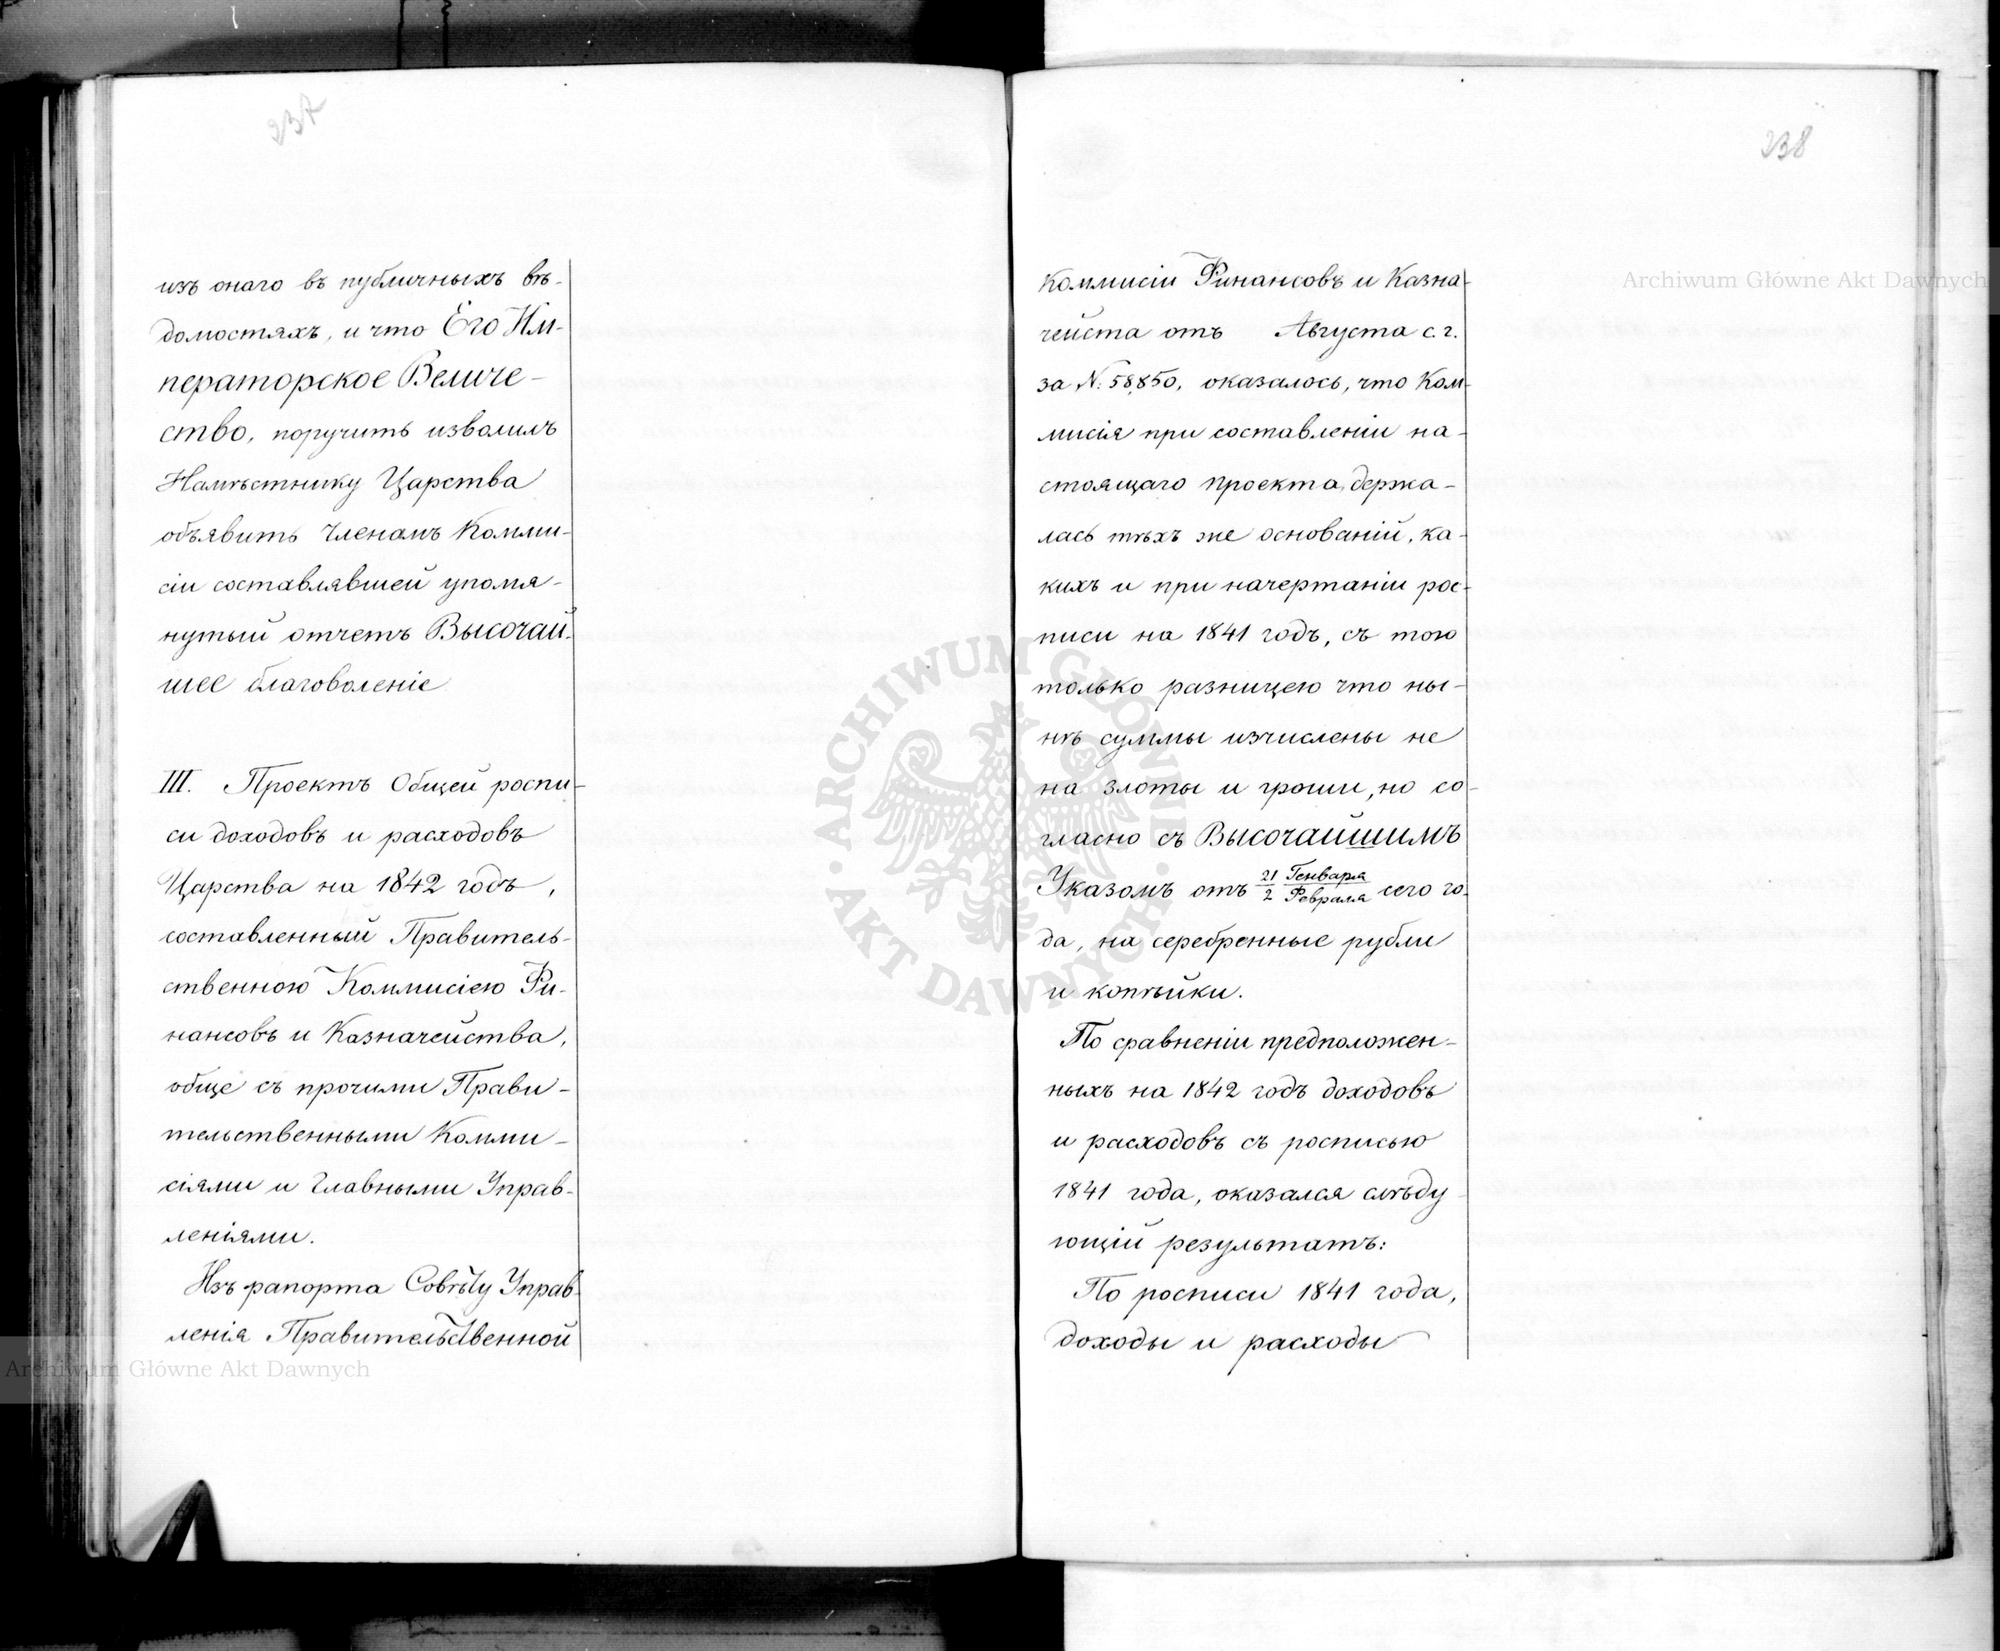 237
изъ онаго въ публичныхъ вѣ-
домостяхъ, и что Его Им-
ператорское Величе-
ство, поручить изволилъ
Намѣстнику Царства
объявить Членамъ Комми-
сіи составлявшей упомя-
нутый отчетъ Высочай-
шее благоволеніе
III. Проектъ Общей роспи-
си доходовъ и расходовъ
Царства на 1842 годъ,
составленный Правитель-
ственною Коммисіею Фи-
нансовъ и Казначейства,
обще съ прочими Прави-
тельственными Комми-
сіями и Главными Управ-
леніями.
Изъ рапорта Совѣту Управ-
ленія Правительственной
238
Коммисіи Финансовъ и Казна-
чейста отъ Августа с. г.
за N: 58,850, оказалось, что Ком-
мисія при составленіи на-
стоящаго проекта, держа-
лась тѣхъ же основаній, ка-
кихъ и при начертаніи рос-
писи на 1841 годъ, съ тою
только разницею что ны-
нѣ суммы изчислены не
на злоты и гроши, но со-
гласно съ Высочайшимъ
Указомъ отъ 21 Генваря / 2 Февраля сего го-
да, на серебренные рубли
и копѣйки.
По сравненіи предположен-
ныхъ на 1842 годъ доходовъ
и расходовъ съ росписью
1841 года, оказался слѣду-
ющій результатъ:
По росписи 1841 года,
доходы и расходы
Archiwum Główne Akt Dawnych
Archiwum Główne Akt Dawnych
ARCHIWUM GŁÓWNE · AKT DAWNYCH ·